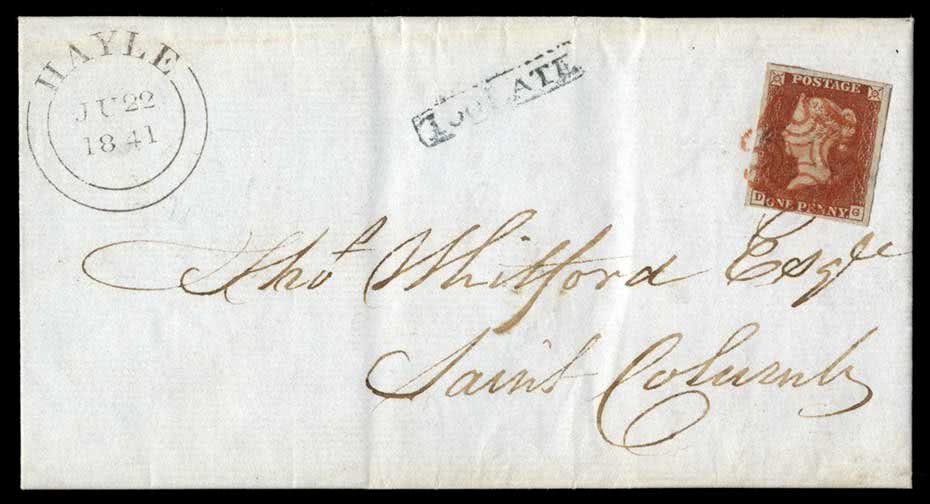 HAYLE
JU 22
1841
TOO LATE
POSTAGE
D ONE PENNY G
Thos Whitford Esqre
Saint Columb